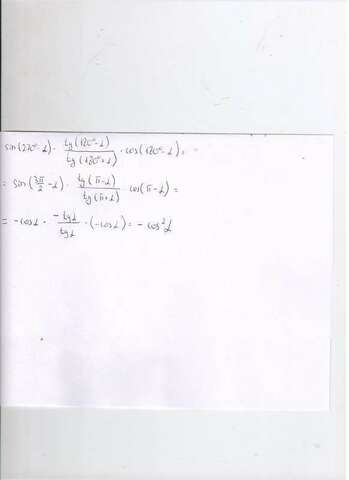 sin(270°-α) · tg(180°-α)/tg(180°+α) · cos(180°-α) =
= sin(3π/2 - α) · tg(π-α)/tg(π+α) · cos(π-α) =
= -cosα · -tgα/tgα · (-cosα) = - cos²α